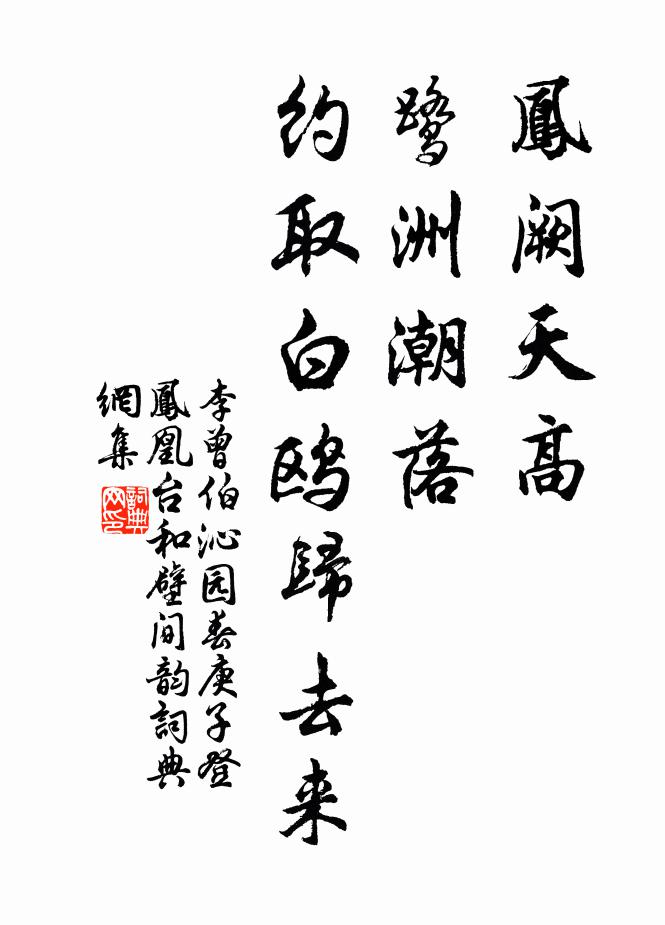 鳳阙天高
鹭洲潮落
约取白鸥歸去来
李曾伯沁园春庚子登
鳳凰台和壁间韵詞典
網集
詞典
网印